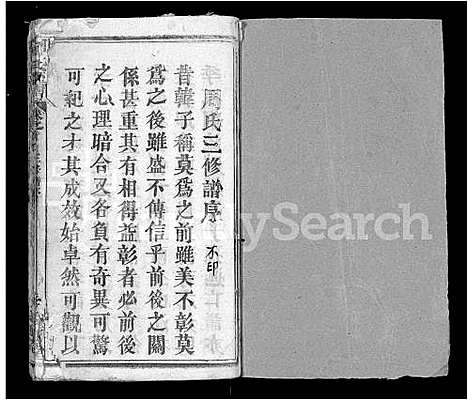 周氏三修譜序
不印
昔韓子稱莫爲之前雖美不彰莫
爲之後雖盛不傳信乎前後之關
係甚重其有相得益彰者必前後
之心理暗合又各負有奇異可驚
可紀之才其成效始卓然可觀以
MySearch